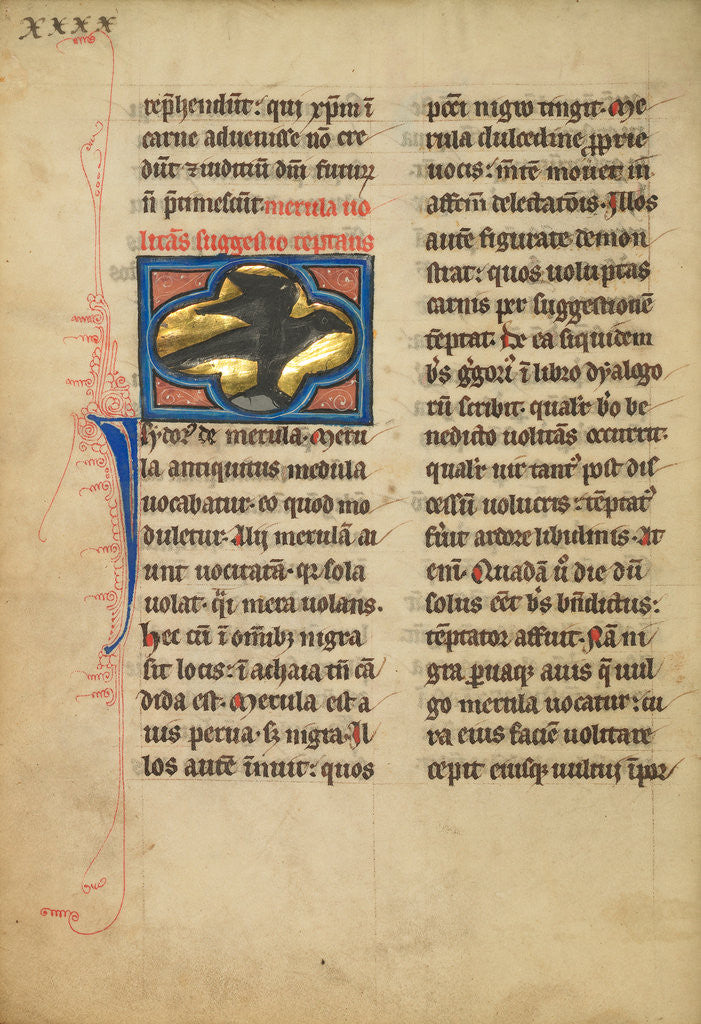 xxxx
rep̄hendūt: qui xp̄m ī
carne aduenisse nō cre
dūt ⁊ iuditiū dn̄i futurꝝ
n̄ ꝑtimescūt. merula uo
litās suggestio teptans
Isydorꝰ de merula. Meru
la antiquitus medula
uocabatur. eo quod mo
duletur. Alij merulā ai
unt uocitatā. qꝛ sola
uolat. q̄ı mera uolans.
hec cū ī om̄ibꝫ nigra
sit locis: ī achaia tn̄ cā
dida est. Merula est a
uis perua. sꝫ nigra. Il
los autē īnuit: quos
pcc̄i nigro tingit. Me
rula dulcedine ꝓprie
uocis: m̄tē mouet in
affc̄m delectat̄ōis. Illos
autē figurate demon
strat: quos uoluptas
carnis per suggestionē
tēptat. De ea siquidem
b̄s g̍gori᾽ ī libro dyalogo
rū scribit. qualr̄ b̄o be
nedicto uolitās occurrit.
qualr̄ uir tantꝰ post dis
cessū uolucris: tēptatꝰ
fūit ardore libidinis. At
eni᷎. Quadā u̾o die dū
solus eēt b̄s bn̄dictus:
tēptator affuit. Nā ni
gra ꝑuaqꝫ auis q̄ uul
go merula uocatur: cir
ca eius faciē uolitare
cepit eiusqꝫ uultuj īpor